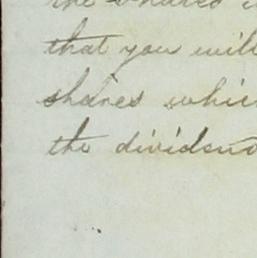 the shares i
that you will
shares whic
the dividend